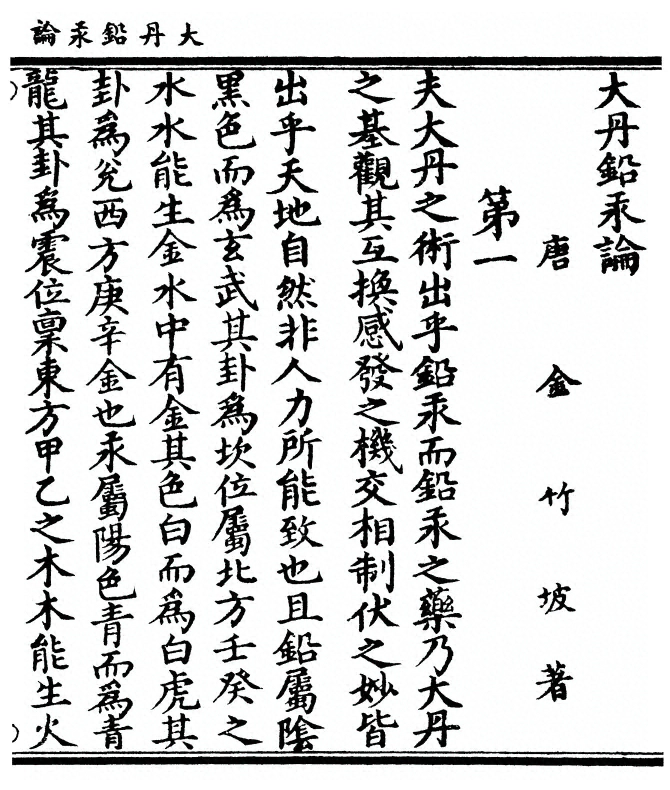 大丹鉛汞論
大丹鉛汞論
唐 金竹坡著
第一
夫大丹之術出乎鉛汞而鉛汞之藥乃大丹
之基觀其互換感發之機交相制伏之妙皆
出乎天地自然非人力所能致也且鉛屬陰
黑色而為玄武其卦為坎位屬北方壬癸之
水水能生金水中有金其色白而為白虎其
卦為兌西方庚辛金也汞屬陽色青而為青
龍其卦為震位稟東方甲乙之木木能生火